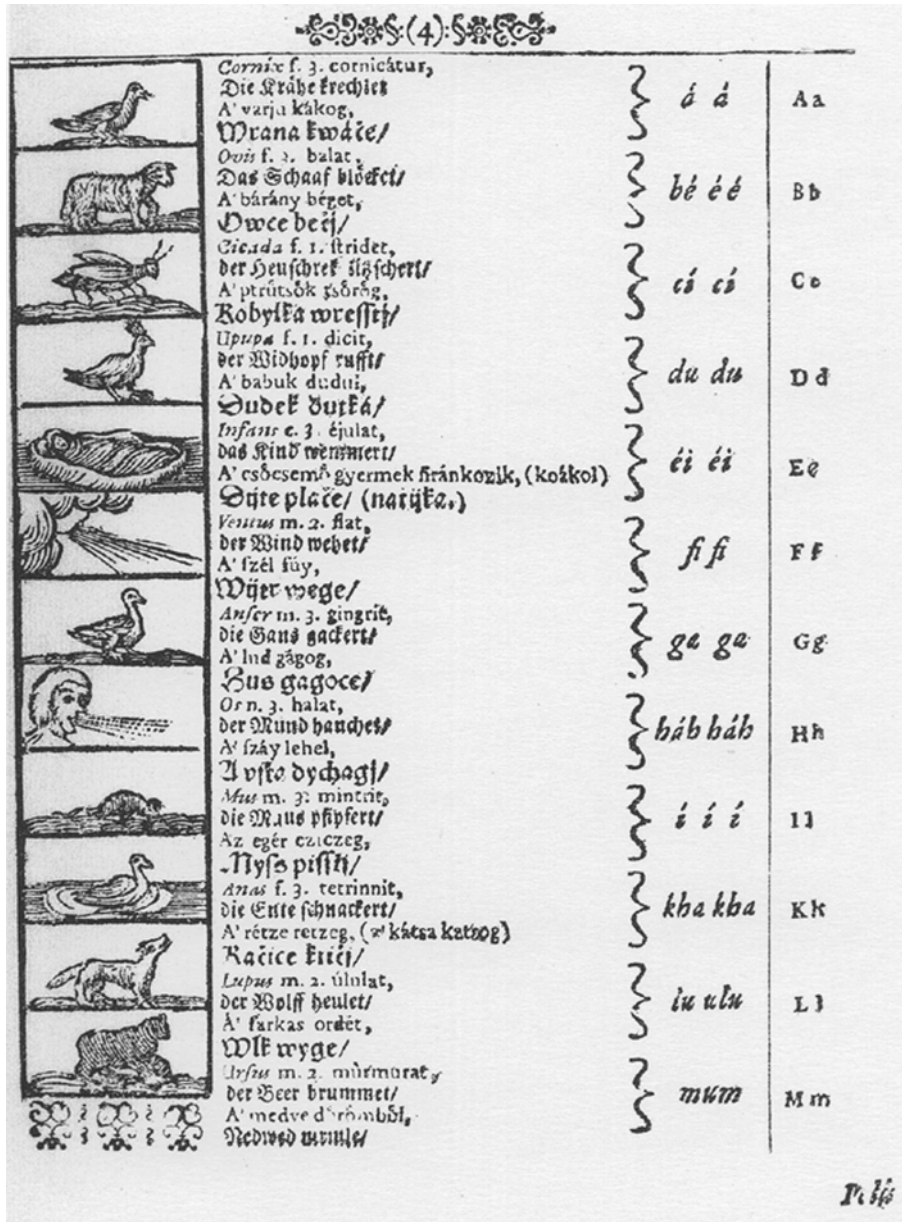 (4)
Cornix f. 3. cornicátur,
Die Krähe krechzet
A' varju kákog,
Wrana kwáče/
á á
Aa
Ovis f. 3. balat,
Das Schaaf blöcket/
A' bárány béget,
Owce bečj/
bé é é
Bb
Cicada f. 1. stridet,
der Heuschrek
A' ptrűtsök
Kobylka
cí cí
Cc
Upupa f. 1. dicit,
der Widhopf rufft/
A' babuk dudul,
Dudek dutká/
du du
Dd
Infans c. 3. éjulat,
das Kind wemmert/
A' csőcsemő gyermek siránkozik, (koákol)
Dijte plače/ (nařijká.)
éi éi
Ee
Ventus m. 2. flat,
der Wind wehet/
A' szél fúy,
Wijtr wege/
fi fi
Ff
Anser m. 3. gingrit,
die Gans gackert/
A' lud gágog,
Hus gagoce/
ga ga
Gg
Os n. 3. halat,
der Mund hauchet/
A' száy lehel,
A vsta dychagj/
háh háh
Hh
Mus m. 3. mintrit,
die Maus pfipfert/
Az egér cziczeg,
Myss pisstj/
í í í
Anas f. 3. tetrinnit,
die Ente schnackert/
A' rétze retzeg, (a' kátsa katzog)
Kačice křičj/
kha kha
Kk
Lupus m. 2. úlulat,
der Wolff heulet/
A' farkas ordét,
Wlk wyge/
lu ulu
Ll
Ursus m. 2. múrmurat,
der Beer brummet/
A' medve dörömböl,
Nedwed mrmle/
mum
Mm